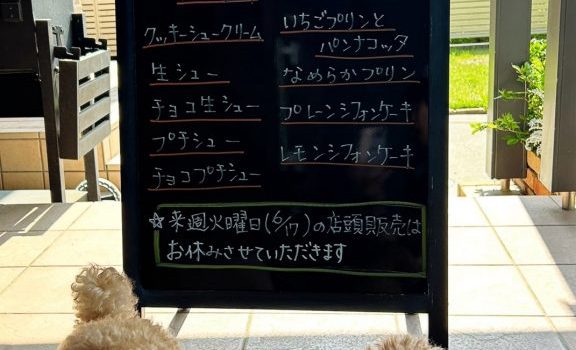 クッキーシュークリーム
生シュー
チョコ生シュー
プチシュー
チョコプチシュー
いちごプリンと
パンナコッタ
なめらかプリン
プレーンシフォンケーキ
レモンシフォンケーキ
☆来週火曜日(6/17)の店頭販売は
お休みさせていただきます